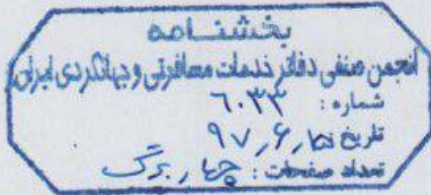 بخشنامه
انجمن صنفی دفاتر خدمات مسافرتی و جهانگردی ایران
شماره : ۶۰۳۳
تاریخ : ۹۷٫۶٫
تعداد صفحات : چهار برگ